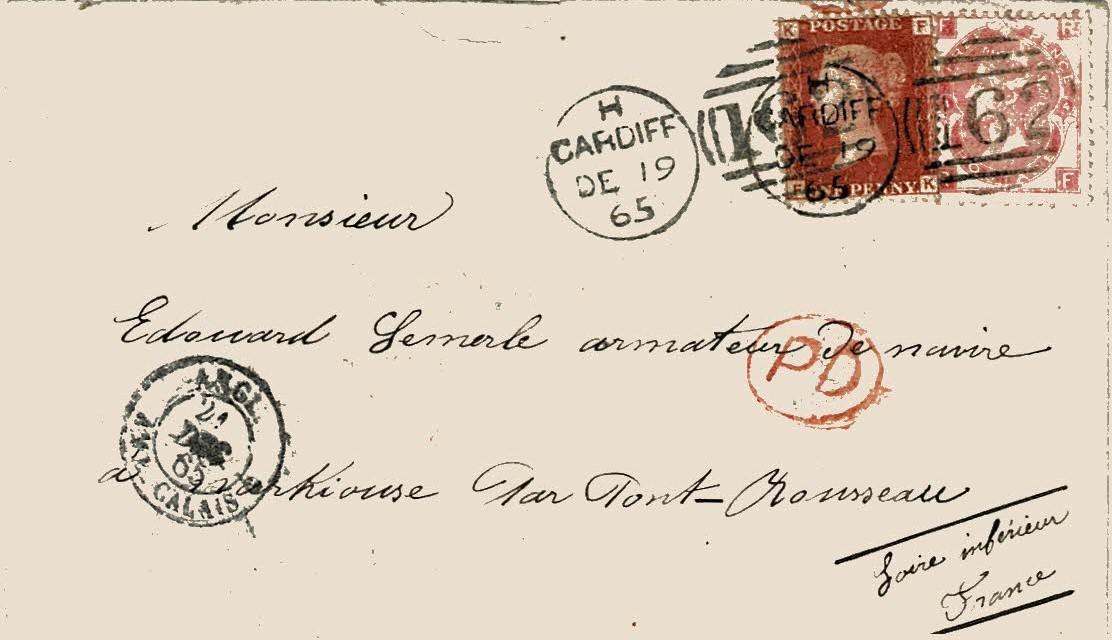 K POSTAGE F
F R
H
CARDIFF
DE 19
65
H
CARDIFF
DE 19
65
162
ONE PENNY K
F
Monsieur
Edouard Lemerle armateur de navire
PD
ANGL.
21
DEC
65
CALAIS
a par Pont-Rousseau
Loire inférieur
France